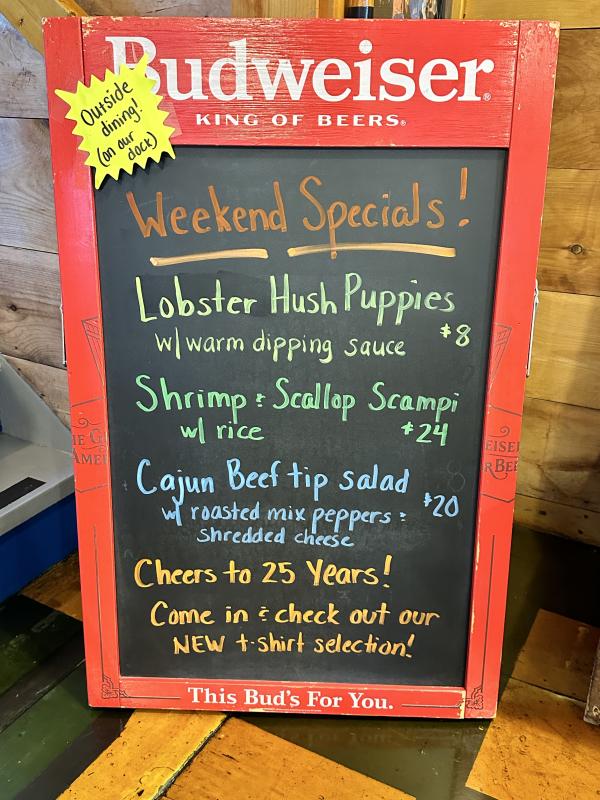 Budweiser®
KING OF BEERS®
Outside
dining!
(on our
dock)
Weekend Specials!
Lobster Hush Puppies
w/warm dipping sauce $8
Shrimp & Scallop Scampi
w/ rice $24
Cajun Beef tip salad
w/ roasted mix peppers & $20
shredded cheese
Cheers to 25 Years!
Come in & check out our
NEW t-shirt selection!
This Bud's For You.